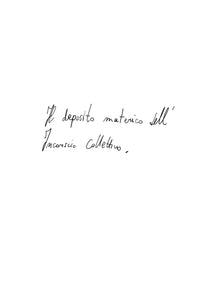 Il deposito materico dell'
Inconscio Collettivo.